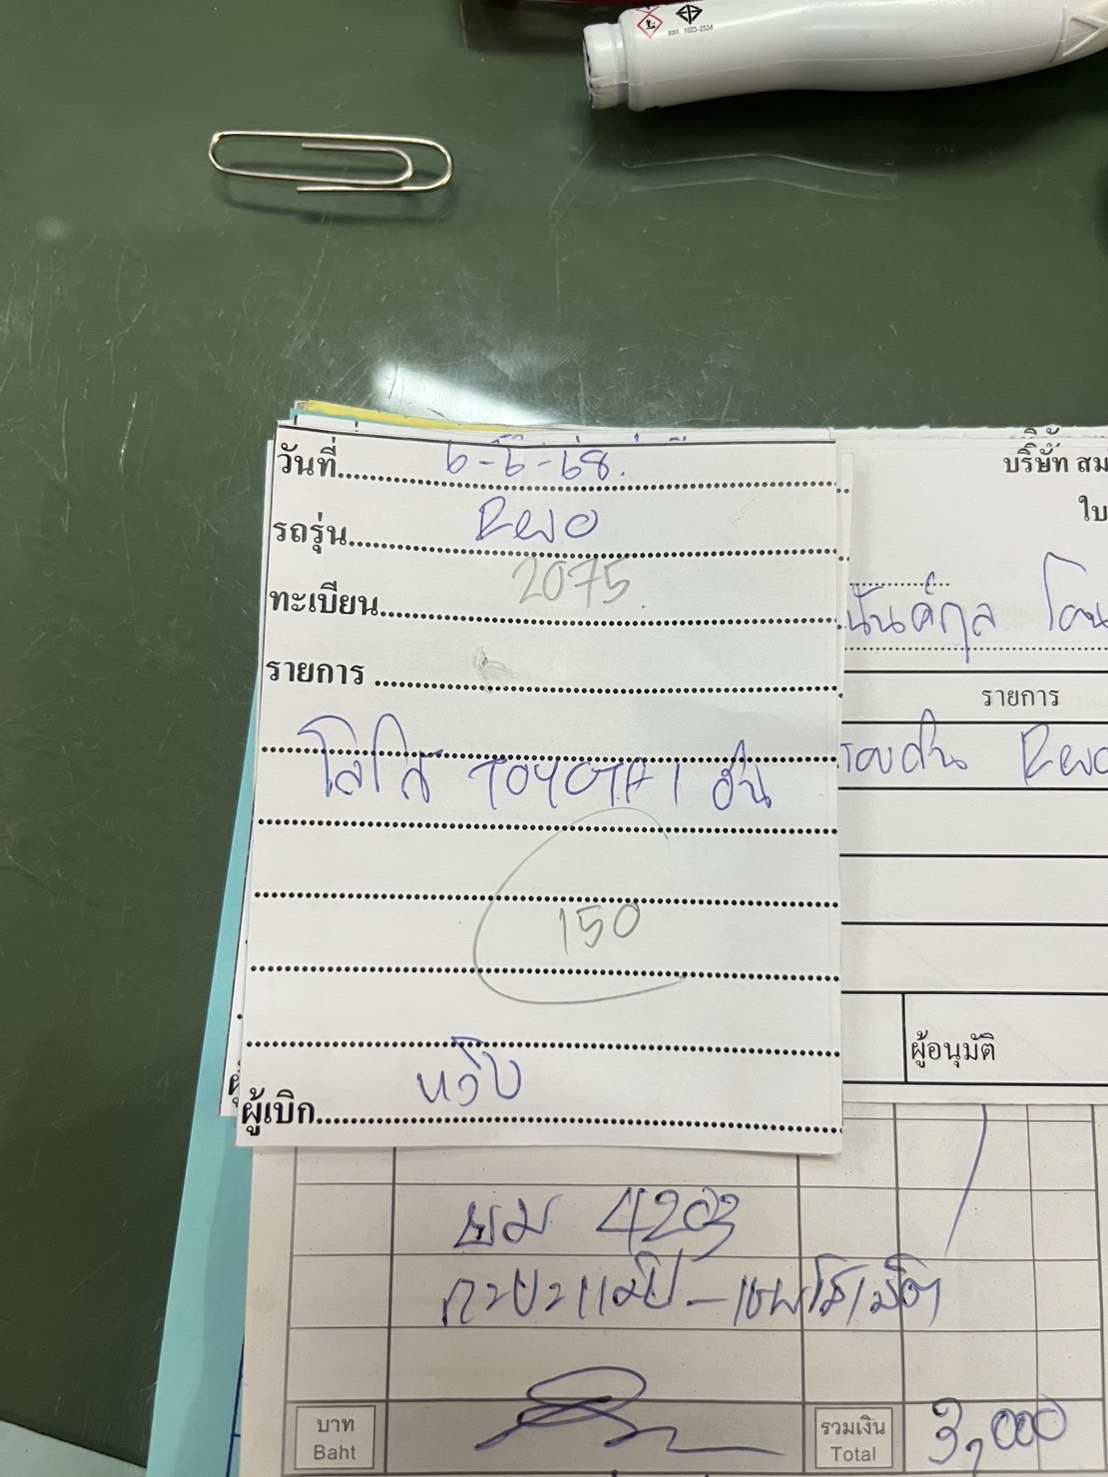 มอก. 1023-2534
วันที่ 6-6-68.
รถรุ่น Revo
ทะเบียน 2075
รายการ
โลโก้ TOYOTA 1 อัน
150
ผู้เบิก
บริษัท สม
ใบ
นันค์กุล โดน
รายการ
Revo
ผู้อนุมัติ
ยม 4203
กะบะแม๊ป-เชฟโรเล๊ต
บาท
Baht
รวมเงิน
Total
3,000